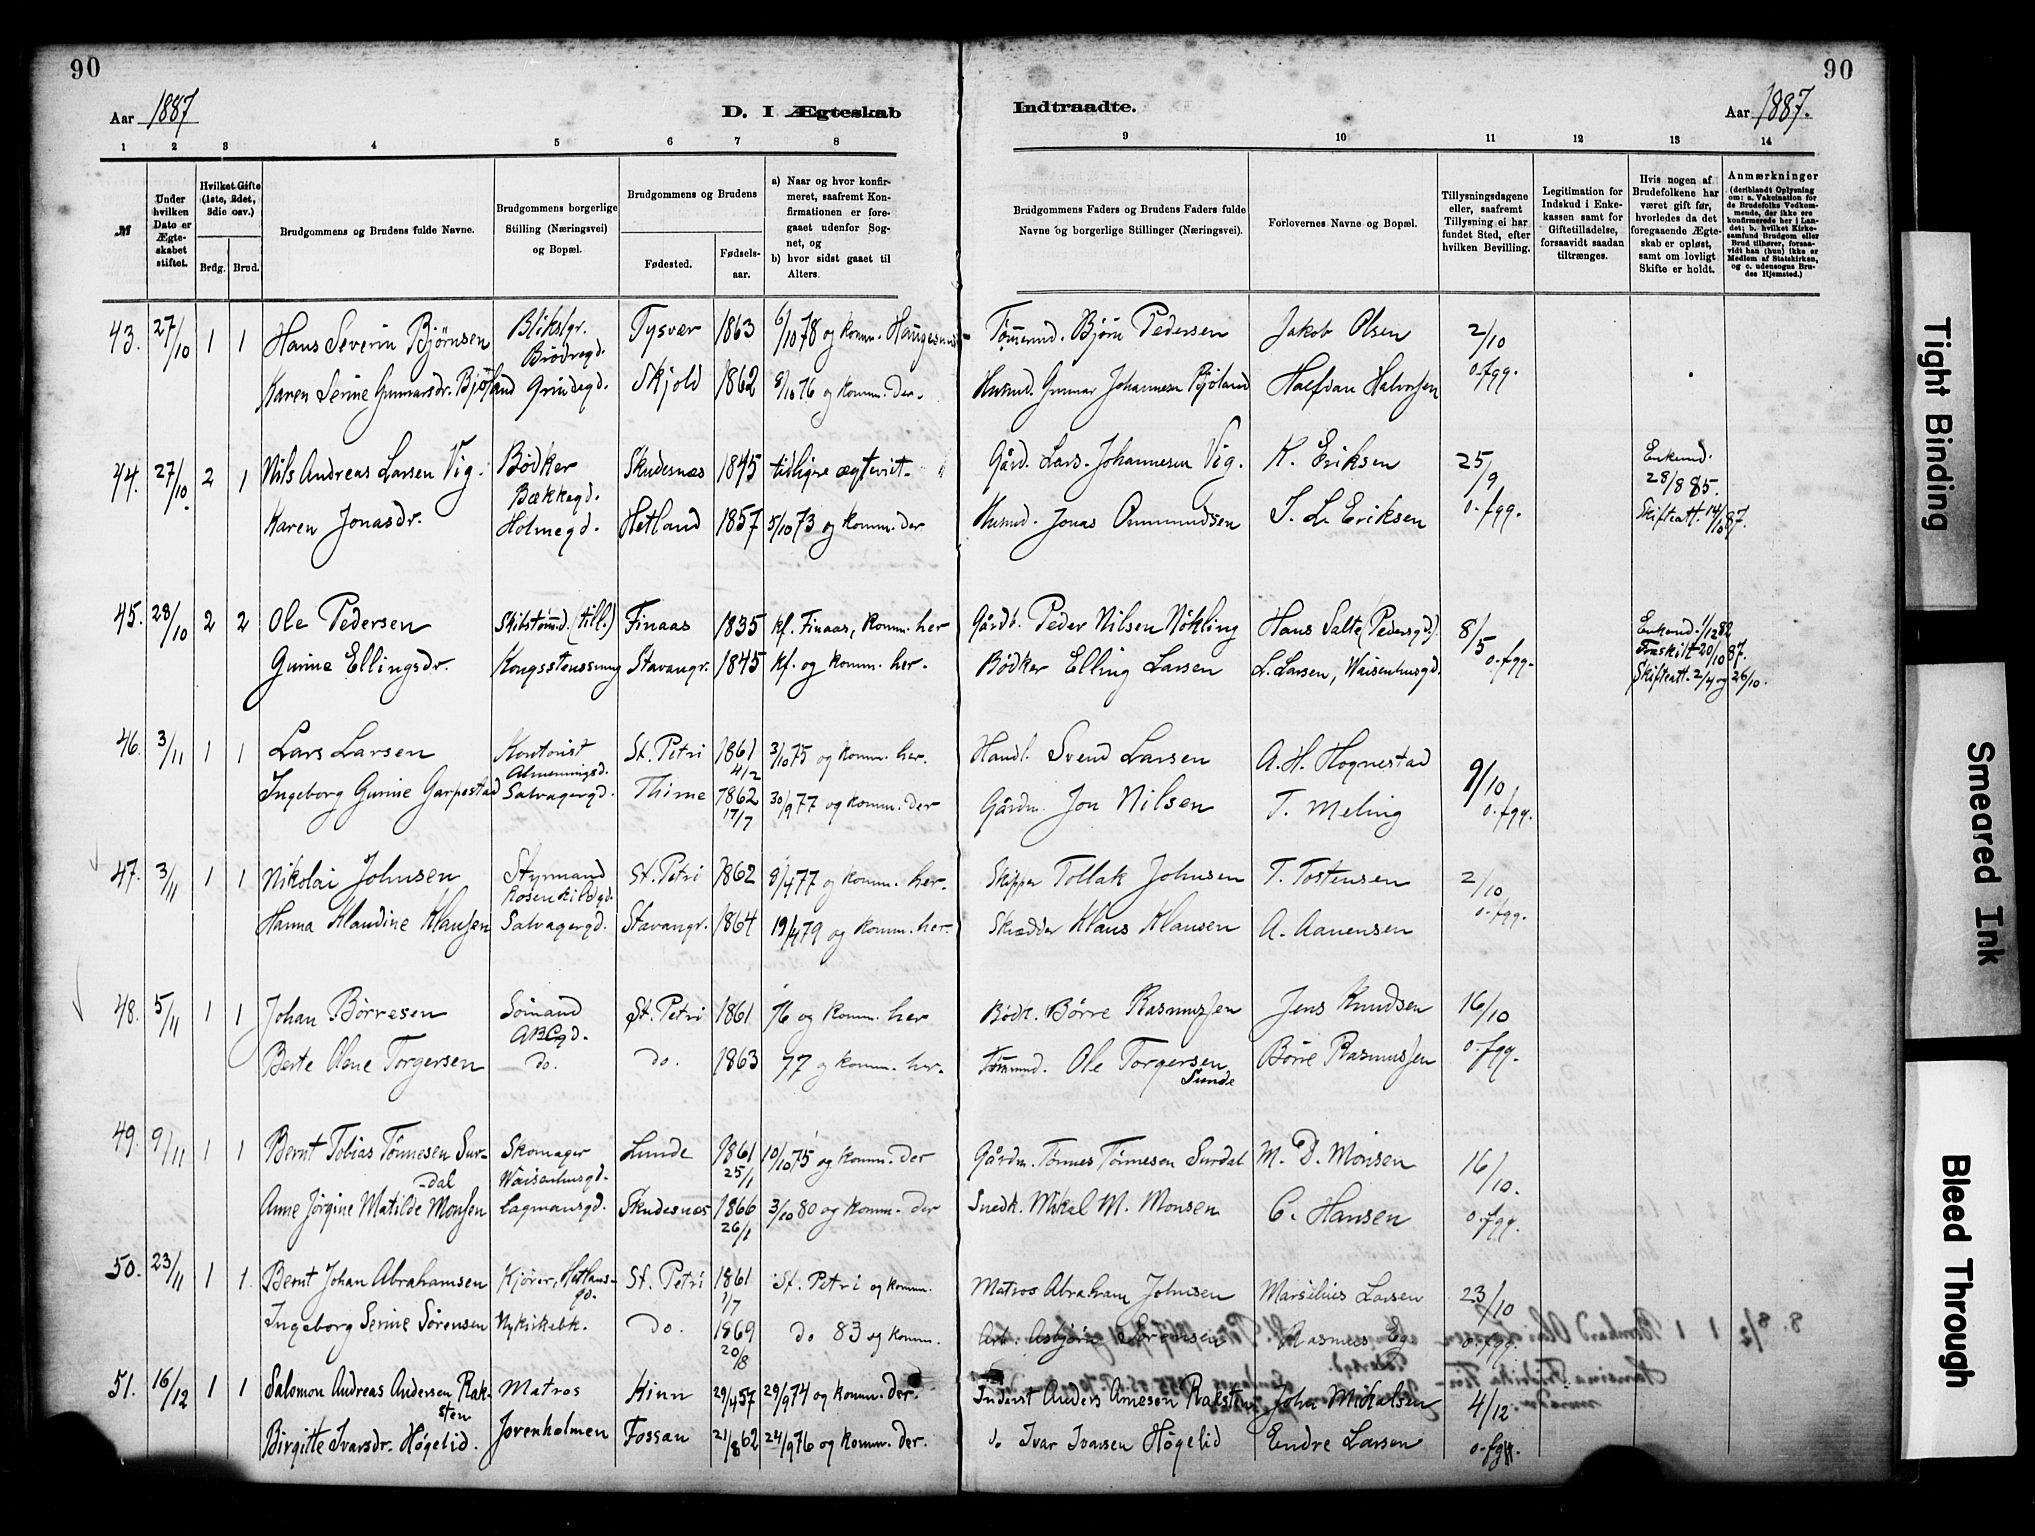 90
90
Aar 1887
D. I Ægteskab
Indtraadte.
Aar 1887.
1 2 3 4 5 6 7 8
9 10 11 12 13 14
№
Under hvilken Dato er Ægteskabet stiftet.
Hvilket Gifte (1ste, 2det, 3die osv.)
Brdg. Brud.
Brudgommens og Brudens fulde Navne.
Brudgommens borgerlige Stilling (Næringsvei) og Bopæl.
Brudgommens og Brudens
Fødested.
Fødselsaar.
a) Naar og hvor konfirmeret, saafremt Konfirmationen er foregaaet udenfor Sognet, og
b) hvor sidst gaaet til Alters.
Brudgommens Faders og Brudens Faders fulde Navne og borgerlige Stillinger (Næringsvei).
Forlovernes Navne og Bopæl.
Tillysningsdagene eller, saafremt Tillysning ei har fundet Sted, efter hvilken Bevilling.
Legitimation for Indskud i Enkekassen samt for Giftetilladelse, forsaavidt saadan tiltrænges.
Hvis nogen af Brudefolkene har været gift før, hvorledes da det foregaaende Ægteskab er opløst, samt om lovligt Skifte er holdt.
Anmærkninger
(deriblandt Oplysning om: a. Vakcination for de Brudefolks Vedkommende, der ikke ere konfirmerede her i Landet; b. hvilket Kirkesamfund Brudgom eller Brud tilhører, forsaavidt han (hun) ikke er Medlem af Statskirken, og c. udensogns Brudes Hjemsted.)
43. 27/10 1 1 Hans Severin Bjørnsen Blikslgr. Brødregd. Tysvær 1863 6/10 78 og komm. Haugesund Tømmermd. Bjørn Pedersen Jakob Olsen 2/10
Karen Serine Gunnarsdr. Bjøland Grindegd. Skjold 1862 8/10 76 og komm. der. Husmd. Gunnar Johannesen Bjøland Halfdan Halvorsen o. fgg.
44. 27/10 2 1 Nils Andreas Larsen Vig. Bødker Bækkegd. Skudesnæs 1845 tidligere ægteviet Gård. Lars Johannesen Vig. K. Eriksen 25/9 Enkemd. 28/8 85.
Karen Jonasdr. Holmegd. Hetland 1857 5/10 73 og komm. der Husmd. Jonas Ommundsen T. L. Eriksen o. fgg. Skifteatt. 14/10 87.
45. 28/10 2 2 Ole Pedersen Skibstømmd. (till.) Finaas 1835 kf. Finaas, komm. her Gårdb. Peder Nilsen Nökling Hans Salte, Pedersgd. 8/5 Enkemd. 1/12 82
Gurine Ellingsdr. Kongsstensmyg Stavangr. 1845 kf. og komm. her. Bødker Elling Larsen L. Larsen, Waisenhusgd. o. fgg. Fraskilt 20/10 87.
Skifteatt. 2/4 og 26/10.
46. 3/11 1 1 Lars Larsen Kontorist Almenningsd. St. Petri 1861 4/2 3/10 75 og komm. her. Handl. Svend Larsen A. H. Hognestad 9/10
Ingeborg Gurine Garpestad Salvagergd. Thime 1862 17/7 30/9 77 og komm. der Gårdm. Jon Nilsen T. Meling o. fgg.
47. 3/11 1 1 Nikolai Johnsen Styrmand Rosenkildgd. St. Petri 1862 8/4 77 og komm. her. Skipper Tollak Johnsen T. Tostensen 2/10
Hanna Klaudine Klausen Salvagergd. Stavangr. 1864 19/4 79 og komm. her. Skrædder Klaus Klausen A. Aanensen o. fgg.
48. 5/11 1 1 Johan Børresen Sømand ABCgd. St. Petri 1861 76 og komm. her Bødk. Børre Rasmussen Jens Knudsen 16/10
Berte Olene Torgersen do. do. 1863 77 og komm. her. Tømmermd. Ole Torgersen Sunde Börre Rasmussen o. fgg.
49. 9/11 1 1 Bernt Tobias Tönnesen Sur-dal Skomager Waisenhusgd. Lunde 1861 25/1 10/10 75 og komm. der Gårdm. Tönnes Tönnesen Surdal M. D. Monsen 16/10.
Anne Jörgine Matilde Monsen Lagmansgd. Skudesnæs 1866 26/1 3/10 80 og komm. der Snedk. Mikal M. Monsen C. Hansen o. fgg.
50. 23/11 1 1. Bernt Johan Abrahamsen Kjører, Hetlansgd. St. Petri 1861 1/7 St. Petri og komm. Matros Abraham Johnsen Marsilius Larsen 23/10
Ingeborg Serine Sörensen Nykirkebk. do. 1869 20/8 do 83 og komm. Arb. Asbjørn Sørensen Rasmus Eg o. fgg.
51. 16/12 1 1 Salomon Andreas Andersen Raksten Matros Kinn 29/4 57 29/9 74 og komm. der. Inderst Anders Arnesen Raksten John Mikalsen 4/12
Birgitte Ivarsdr. Høgelid. Jorenholmen Fossan 21/8 62 24/9 76 og komm. der. do Ivar Ivarsen Høgelid Endre Larsen o. fgg.
Tight Binding
Smeared Ink
Bleed Through